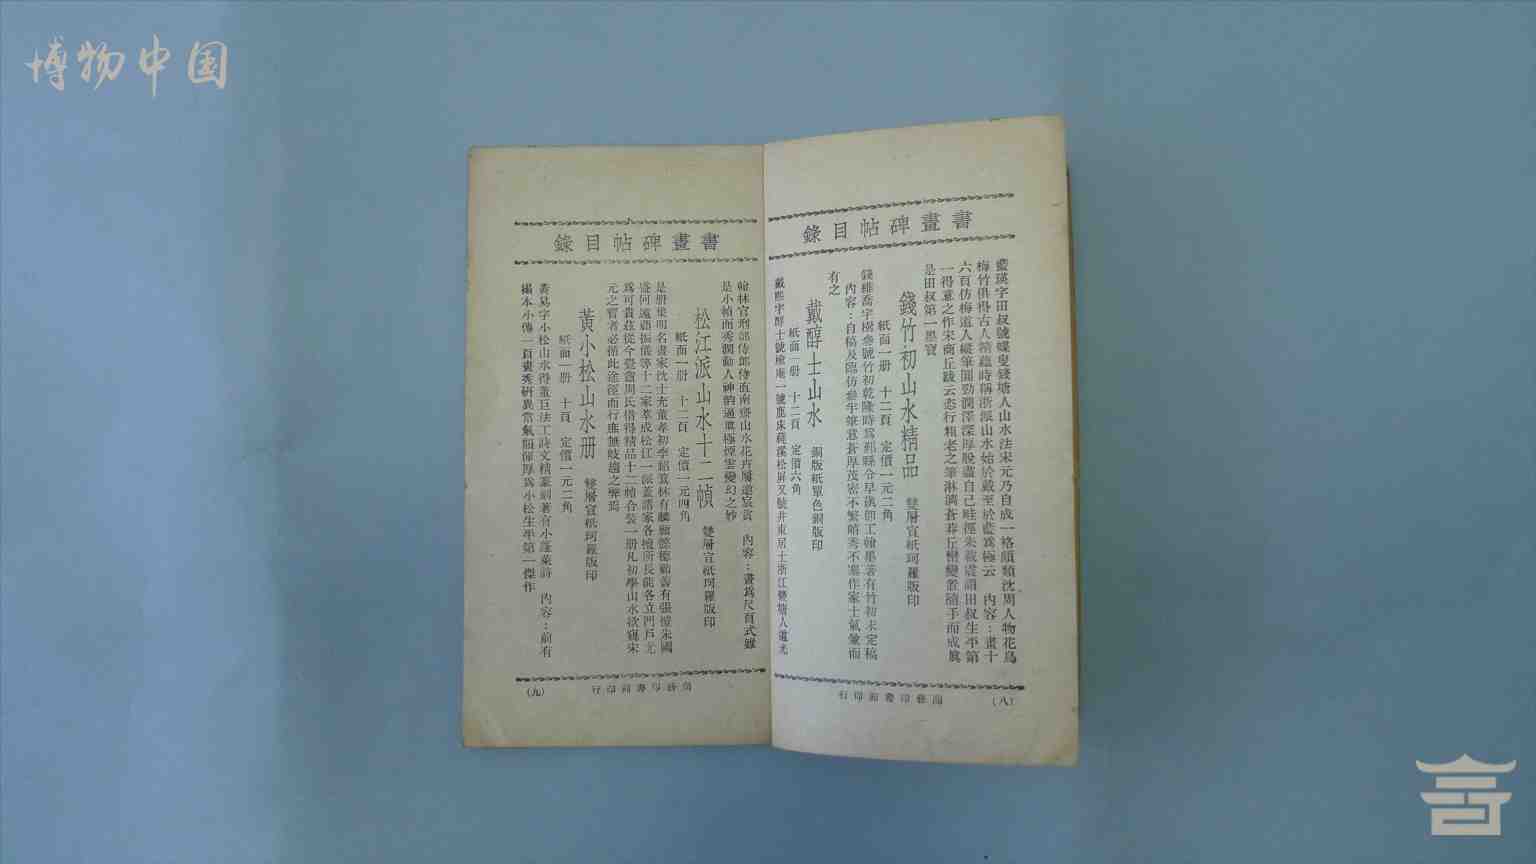 博物中国
書畫碑帖目錄
藍瑛字田叔號蜨叟錢塘人山水法宋元乃自成一格頗類沈周人物花鳥
梅竹俱得古人精蘊時稱浙派山水始於戴至於藍為極云 內容：畫十
六頁仿梅道人縱筆圓勁潤澤深厚脫盡自己畦徑朱載震謂田叔生平第
一得意之作宋商丘跋云恣行粗老之筆淋漓蒼莽丘巒變滅隨手而成眞
是田叔第一墨寶
錢竹初山水精品 雙層宣紙珂羅版印
紙面一册 十二頁 定價一元二角
錢維喬字樹參號竹初乾隆時爲鄞縣令早歲卽工翰墨著有竹初未定稿
內容：自稿及臨仿參半筆意蒼厚茂密不繁縟秀不塞作家士氣兼而
有之
戴醇士山水 銅版紙單色銅版印
紙面一册 十二頁 定價六角
戴熙字醇士號榆庵一號鹿床 松屏又號井東居士浙江錢塘人道光
商務印書館印行
（八）
書畫碑帖目錄
翰林官刑部侍郎侍直南齋山水花卉屢邀宸賞 內容：畫爲尺頁式雖
是小幀而秀潤動人神韵逼眞極煙雲變幻之妙
松江派山水十二幀 雙層宣紙珂羅版印
紙面一册 十二頁 定價一元四角
是册集明名畫家沈士充董孝初李紹箕林有麟 顧善有張 朱國
盛何遠蔣 振儀等十二家萃成松江一派蓋諸家各擅所長能各立門戶尤
爲可貴茲從今 盦周氏借得精品十二幀合裝一册凡初學山水欲窺宋
元之奧者必循此途徑而行庶無歧趨之弊焉
黃小松山水册 雙層宣紙珂羅版印
紙面一册 十頁 定價一元二角
黃易字小松山水得董巨法工詩文精篆刻著有小蓬萊詩 內容：前有
橅本小像一頁畫秀硏異常氣韻渾厚爲小松生平第一傑作
商務印書館印行
（九）